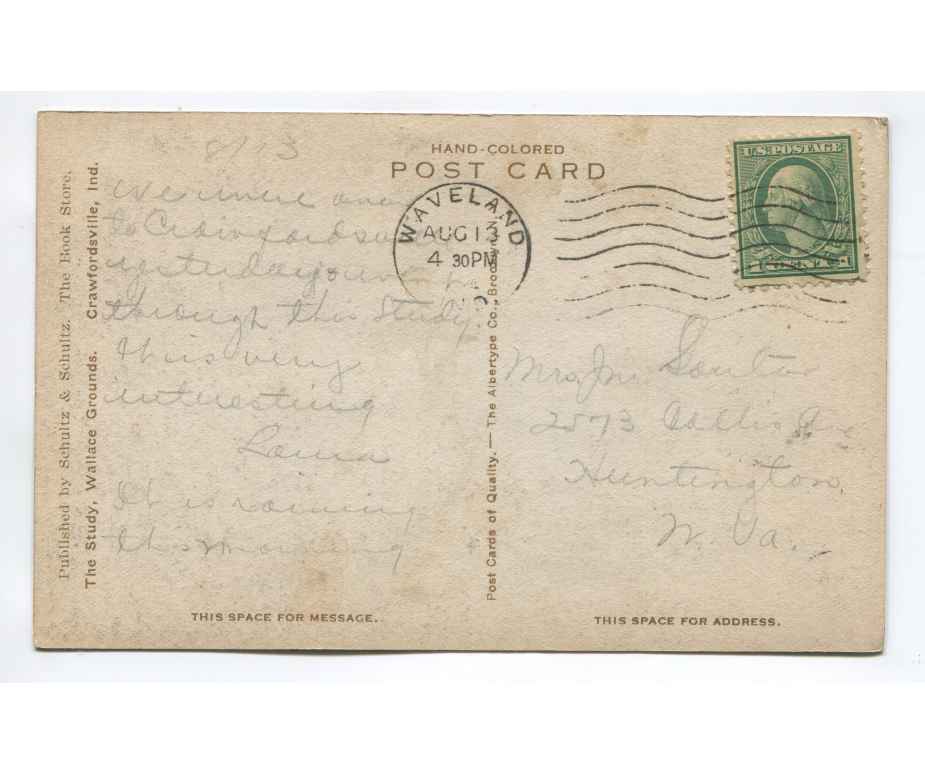 Published by Schultz & Schultz. The Book Store.
The Study, Wallace Grounds. Crawfordsville, Ind.
8/13
We were over
to Crawfordsville
yesterday
through this Study.
It is very
interesting
Laura
It is raining
this morning
THIS SPACE FOR MESSAGE.
HAND-COLORED
POST CARD
WAVELAND
AUG 13
4 30PM
Post Cards of Quality. — The Albertype Co., Brooklyn, N.Y.
U.S. POSTAGE
Mrs. Jno.
2573 Collis Ave
Huntington,
W. Va.
THIS SPACE FOR ADDRESS.